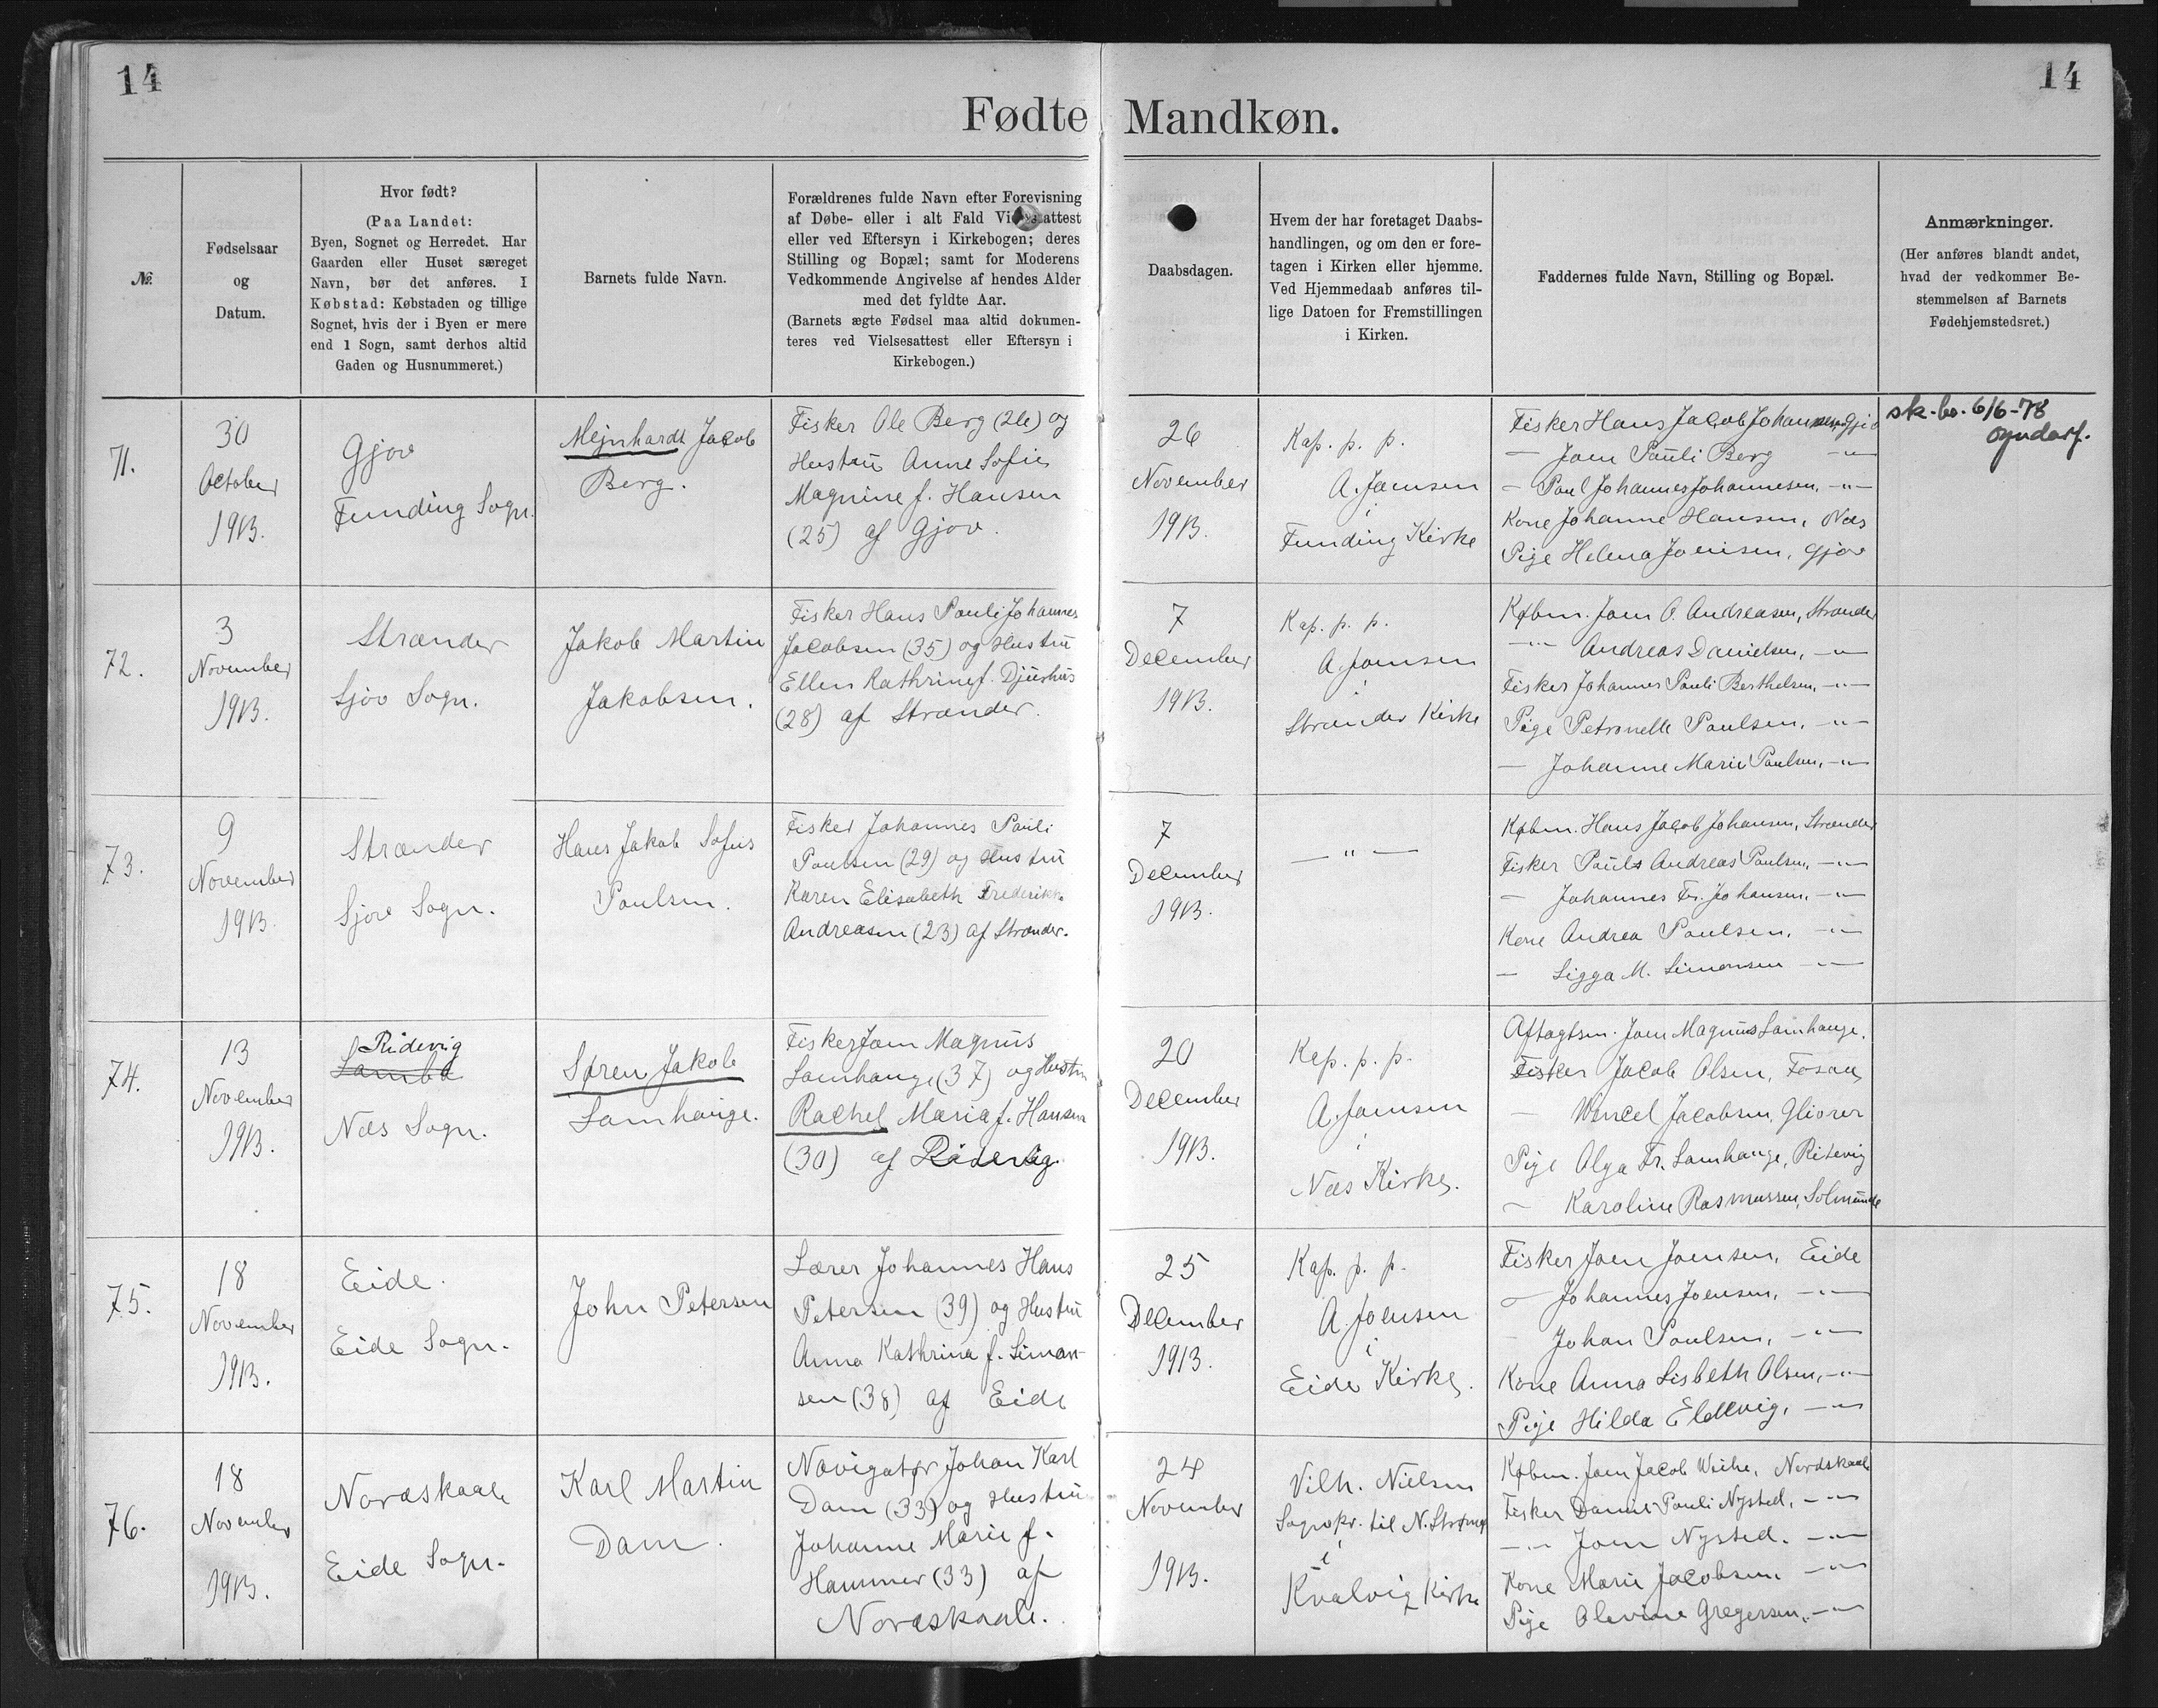 14
14
Fødte Mandkøn.
№
Fødselsaar
og
Datum.
Hvor født?
(Paa Landet:
Byen, Sognet og Herredet. Har
Gaarden eller Huset særeget
Navn, bør det anføres. I
Købstad: Købstaden og tillige
Sognet, hvis der i Byen er mere
end 1 Sogn, samt derhos altid
Gaden og Husnummeret.)
Barnets fulde Navn.
Forældrenes fulde Navn efter Forevisning
af Døbe- eller i alt Fald Vielsesattest
eller ved Eftersyn i Kirkebogen; deres
Stilling og Bopæl; samt for Moderens
Vedkommende Angivelse af hendes Alder
med det fyldte Aar.
(Barnets ægte Fødsel maa altid dokumen-
teres ved Vielsesattest eller Eftersyn i
Kirkebogen.)
Daabsdagen.
Hvem der har foretaget Daabs-
handlingen, og om den er fore-
tagen i Kirken eller hjemme.
Ved Hjemmedaab anføres til-
lige Datoen for Fremstillingen
i Kirken.
Faddernes fulde Navn, Stilling og Bopæl.
Anmærkninger.
(Her anføres blandt andet,
hvad der vedkommer Be-
stemmelsen af Barnets
Fødehjemstedsret.)
71.
30
October
1913.
Gjov
Funding Sogn.
Mejnhardt Jacob
Berg.
Fisker Ole Berg (26) og
Hustru Anne Sofie
Magnine f. Hansen
(25) af Gjov.
26
November
1913.
Kap. p. p.
A. Joensen
i
Funding Kirke
Fisker Hans Jacob Johannesen, Gjov
— Joen Pauli Berg —"—
— Poul Johannes Johannesen, —"—
Kone Johanne Hansen, Næs
Pige Helena Joensen, Gjov
sk.-bo. 6/6-78
72.
3
November
1913.
Strænder
Sjov Sogn.
Jakob Martin
Jakobsen.
Fisker Hans Pauli Johannes
Jacobsen (35) og Hustru
Ellen Kathrine f. Djurhus
(28) af Strænder.
7
December
1913.
Kap. p. p.
A. Joensen
i
Strænder Kirke
Købm. Joen O. Andreasen, Strænder
—"— Andreas Danielsen, —"—
Fisker Johannes Pauli Berthelsen, —"—
Pige Petronelle Poulsen, —"—
— Johanne Marie Poulsen, —"—
73.
9
November
1913.
Strænder
Sjov Sogn.
Hans Jakob Sofus
Poulsen.
Fisker Johannes Pauli
Poulsen (29) og Hustru
Karen Elisabeth Frederikke
Andreasen (23) af Strænder.
7
December
1913.
— " —
Købm. Hans Jacob Johansen, Strænder
Fisker Pauls Andreas Poulsen, —"—
— Johannes Fr. Johansen, —"—
Kone Andrea Poulsen, —"—
— Sigga M. Simonsen —"—
74.
13
November
1913.
Ridevig
Lamba
Næs Sogn.
Søren Jakob
Lamhauge.
Fisker Joen Magnus
Lamhauge (37) og Hustru
Rachel Maria f. Hansen
(30) af Ridevig.
20
December
1913.
Kap. p. p.
A. Joensen
i
Næs Kirke.
Aftagtsm. Joen Magnus Lamhauge.
Fisker Jacob Olsen,
— Wencel Jacobsen, Glivrer
Pige Olga Fr. Lamhauge, Ritevig
— Karoline Rasmussen, Solmunde
75.
18
November
1913.
Eide.
Eide Sogn.
John Petersen
Lærer Johannes Hans
Petersen (39) og Hustru
Anna Kathrina f. Simon-
sen (38) af Eide
25
December
1913.
Kap. p. p.
A. Joensen
i
Eide Kirke.
Fisker Joen Joensen, Eide
— Johannes Joensen, —"—
— Johan Poulsen, —"—
Kone Anna Lisbeth Olsen, —"—
Pige Hilda Eldevig, —"—
76.
18
November
1913.
Nordskaale
Eide Sogn.
Karl Martin
Dam.
Navigatør Johan Karl
Dam (33) og Hustru
Johanne Marie f.
Hammer (33) af
Nordskaale.
24
November
1913.
Vilh. Nielsen
Sognepr. til N. Strømø
i
Kvalvig Kirke
Købm. Joen Jacob Weihe, Nordskaale
Fisker Daniel Pauli Nysted, —"—
—"— Joen Nysted. —"—
Kone Marie Jacobsen, —"—
Pige Olevine Gregersen, —"—